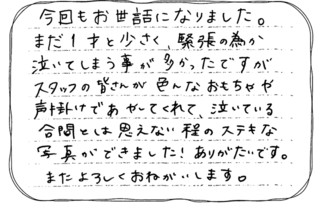 今回もお世話になりました。
まだ1才と少さく、緊張の為か
泣いてしまう事が多かったですが
スタッフの皆さんが色んなおもちゃや
声掛けであやしてくれて、泣いている
合間とは思えない程のステキな
写真ができました！ありがたいです。
またよろしくおねがいします。